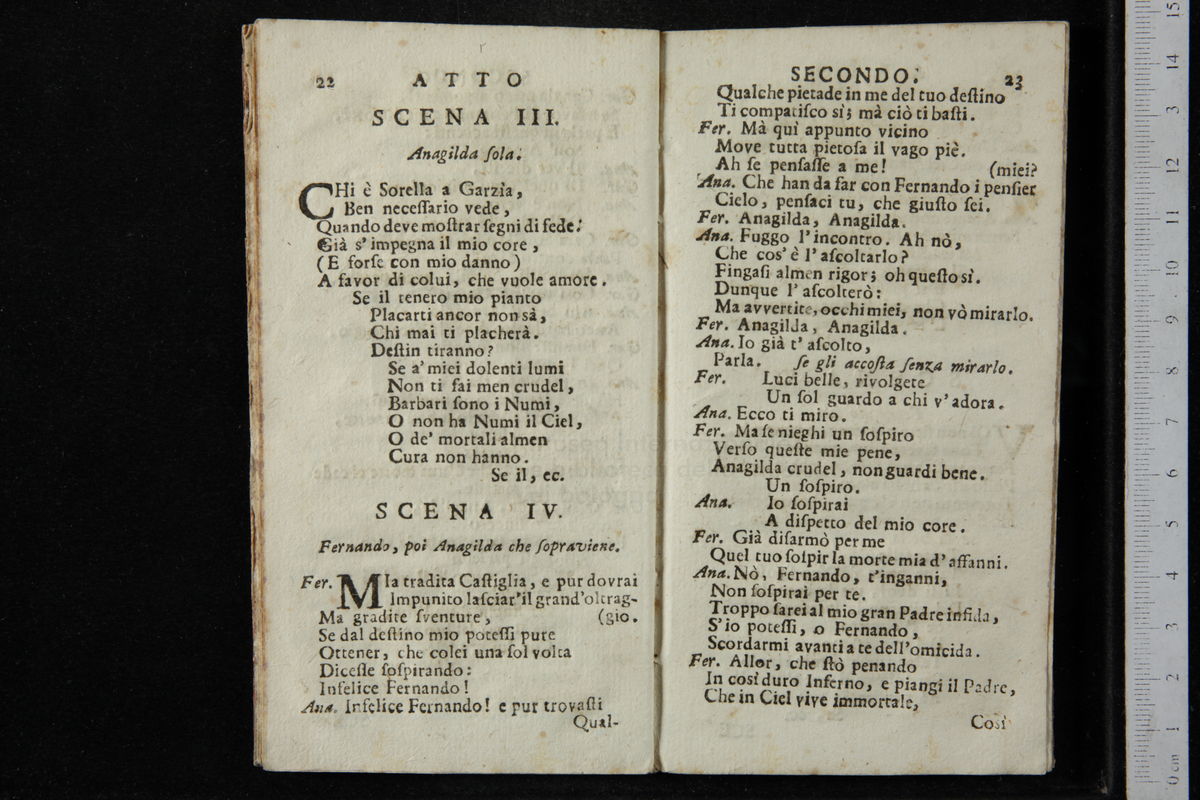 22 ATTO
SCENA III.
Anagilda ſola.
CHi è Sorella a Garzìa,
Ben neceſſario vede,
Quando deve moſtrar ſegni di fede.
Già s'impegna il mio core,
(E forſe con mio danno)
A favor di colui, che vuole amore.
Se il tenero mio pianto
Placarti ancor non sà,
Chi mai ti placherà.
Deſtin tiranno?
Se a' miei dolenti lumi
Non ti fai men crudel,
Barbari ſono i Numi,
O non ha Numi il Ciel,
O de' mortali almen
Cura non hanno.
Se il, ec.
SCENA IV.
Fernando, poi Anagilda che ſopraviene.
Fer. MIa tradita Caſtiglia, e pur dovrai
Impunito laſciar'il grand'oltrag-
Ma gradite ſventure, (gio.
Se dal deſtino mio poteſſi pure
Ottener, che colei una ſol volta
Diceſſe ſoſpirando:
Infelice Fernando!
Ana. Infelice Fernando! e pur trovaſti
Qual-
SECONDO. 23
Qualche pietade in me del tuo deſtino
Ti compatiſco sì; mà ciò ti baſti.
Fer. Mà quì appunto vicino
Move tutta pietoſa il vago piè.
Ah ſe penſaſſe a me! (miei?
Ana. Che han da far con Fernando i penſier
Cielo, penſaci tu, che giuſto ſei.
Fer. Anagilda, Anagilda.
Ana. Fuggo l'incontro. Ah nò,
Che cos' è l'aſcoltarlo?
Fingaſi almen rigor; oh queſto sì.
Dunque l' aſcolterò:
Ma avvertite, occhi miei, non vò mirarlo.
Fer. Anagilda, Anagilda.
Ana. Io già t' aſcolto,
Parla. ſe gli accoſta ſenza mirarlo.
Fer. Luci belle, rivolgete
Un ſol guardo a chi v'adora.
Ana. Ecco ti miro.
Fer. Ma ſe nieghi un ſoſpiro
Verſo queſte mie pene,
Anagilda crudel, non guardi bene.
Un ſoſpiro.
Ana. Io ſoſpirai
A diſpetto del mio core.
Fer. Già diſarmò per me
Quel tuo ſoſpir la morte mia d' affanni.
Ana. Nò, Fernando, t'inganni,
Non ſoſpirai per te.
Troppo ſarei al mio gran Padre infida,
S'io poteſſi, o Fernando,
Scordarmi avanti a te dell'omicida.
Fer. Allor, che ſtò penando
In così duro Inferno, e piangi il Padre,
Che in Ciel vive immortale,
Così